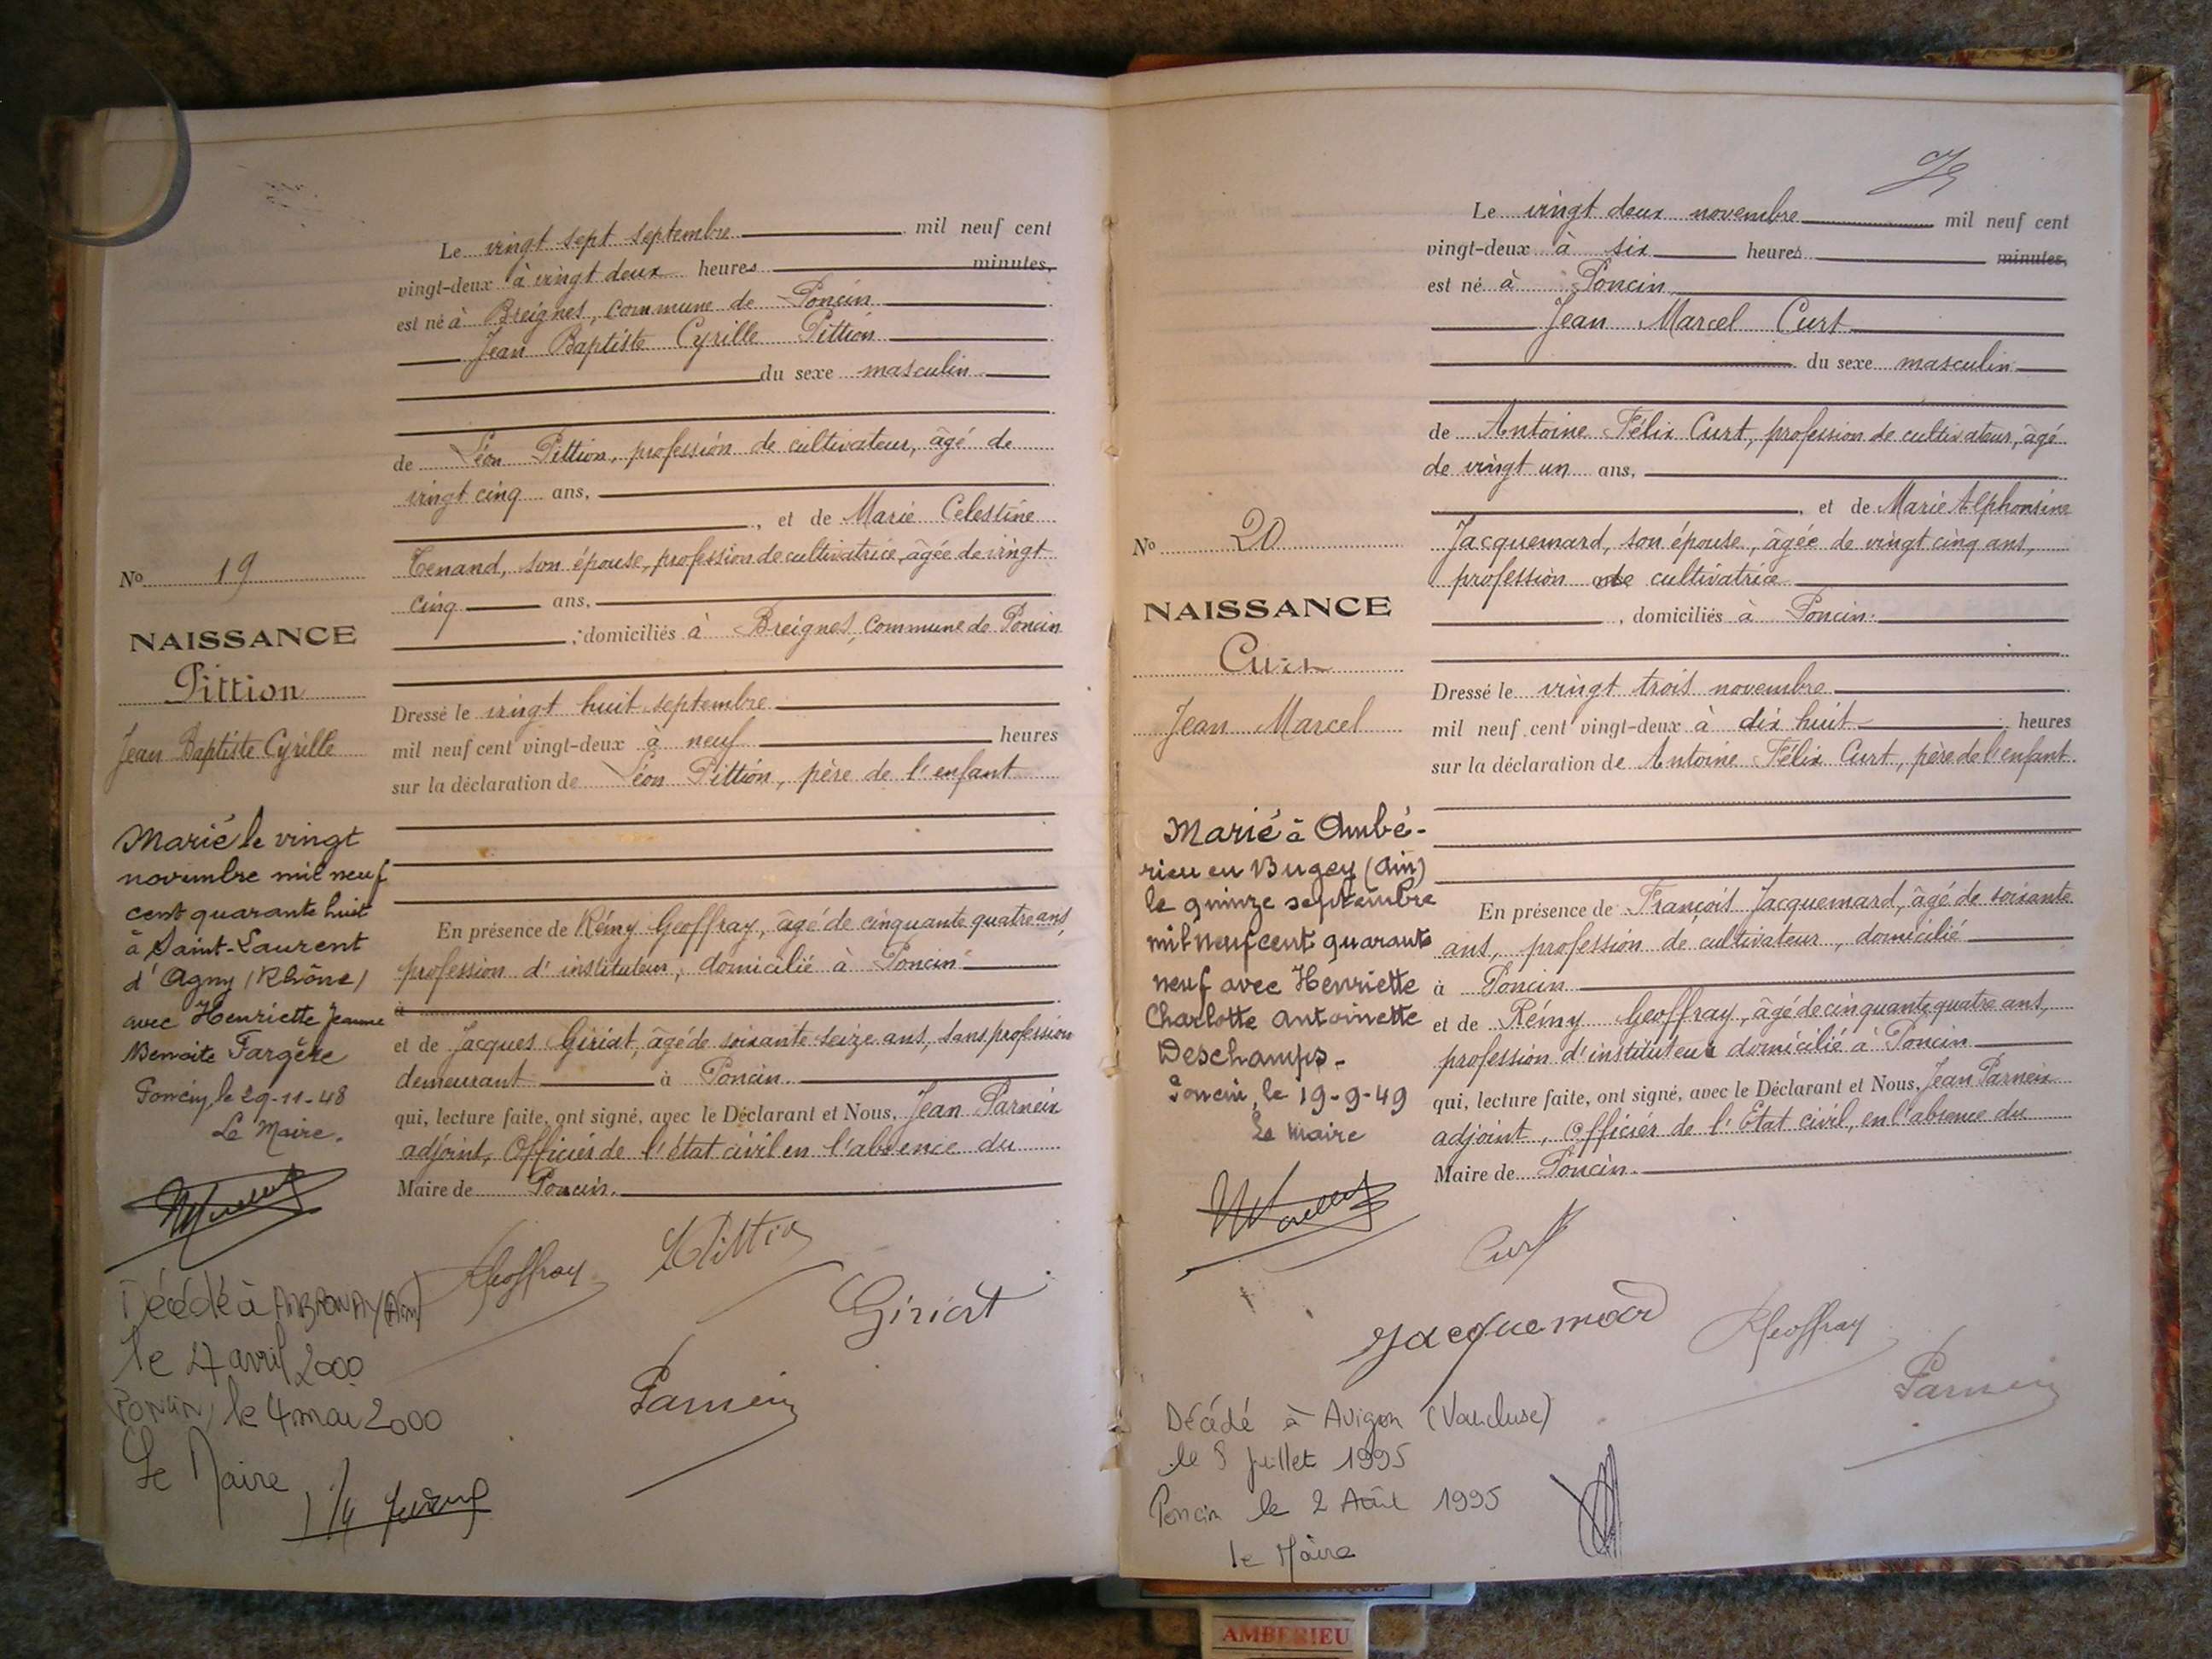 Le vingt sept septembre mil neuf cent
vingt-deux à vingt deux heures minutes,
est né à Breignes, commune de Poncin
Jean Baptiste Cyrille Pittion
du sexe masculin
de Léon Pittion, profession de cultivateur, âgé de
vingt cinq ans,
, et de Marie Célestine
Tenand, son épouse, profession de cultivatrice, âgée de vingt
cinq ans,
, domiciliés à Breignes, commune de Poncin
Dressé le vingt huit septembre
mil neuf cent vingt-deux à neuf heures
sur la déclaration de Léon Pittion, père de l'enfant
En présence de Rémy Geoffray, âgé de cinquante quatre ans,
profession d'instituteur, domicilié à Poncin
à
et de Jacques Giriat, âgé de soixante seize ans, sans profession
demeurant à Poncin
qui, lecture faite, ont signé, avec le Déclarant et Nous, Jean Parneix
adjoint, Officier de l'état civil en l'absence du
Maire de Poncin.
Geoffray
Pittion
Giriat
Parneix
No 19
NAISSANCE
Pittion
Jean Baptiste Cyrille
Marié le vingt
novembre mil neuf
cent quarante huit
à Saint-Laurent
d'Agny (Rhône)
avec Henriette Jeanne
Benoite Fargère
Poncin, le 29-11-48
Le Maire.
Décédé à AMBRONAY (Ain)
le 27 avril 2000
PONCIN, le 4 mai 2000
Le Maire
Le vingt deux novembre mil neuf cent
vingt-deux à six heures minutes,
est né à Poncin
Jean Marcel Curt
du sexe masculin
de Antoine Félix Curt, profession de cultivateur, âgé
de vingt un ans,
, et de Marie Alphonsine
Jacquemard, son épouse, âgée de vingt cinq ans,
profession de cultivatrice
, domiciliés à Poncin.
Dressé le vingt trois novembre
mil neuf cent vingt-deux à dix huit heures
sur la déclaration de Antoine Félix Curt, père de l'enfant.
En présence de François Jacquemard, âgé de soixante
ans, profession de cultivateur, domicilié
à Poncin
et de Rémy Geoffray, âgé de cinquante quatre ans,
profession d'instituteur domicilié à Poncin
qui, lecture faite, ont signé, avec le Déclarant et Nous, Jean Parneix
adjoint, Officier de l'Etat civil, en l'absence du
Maire de Poncin.
Curt
Jacquemard
Geoffray
Parneix
No 20
NAISSANCE
Curt
Jean Marcel
Marié à Ambé-
rieu en Bugey (Ain)
le quinze septembre
mil neuf cent quarante
neuf avec Henriette
Charlotte Antoinette
Deschamps.
Poncin, le 19-9-49
Le Maire
Décédé à Avignon (Vaucluse)
le 8 juillet 1995
Poncin le 2 Août 1995
le Maire
AMBERIEU